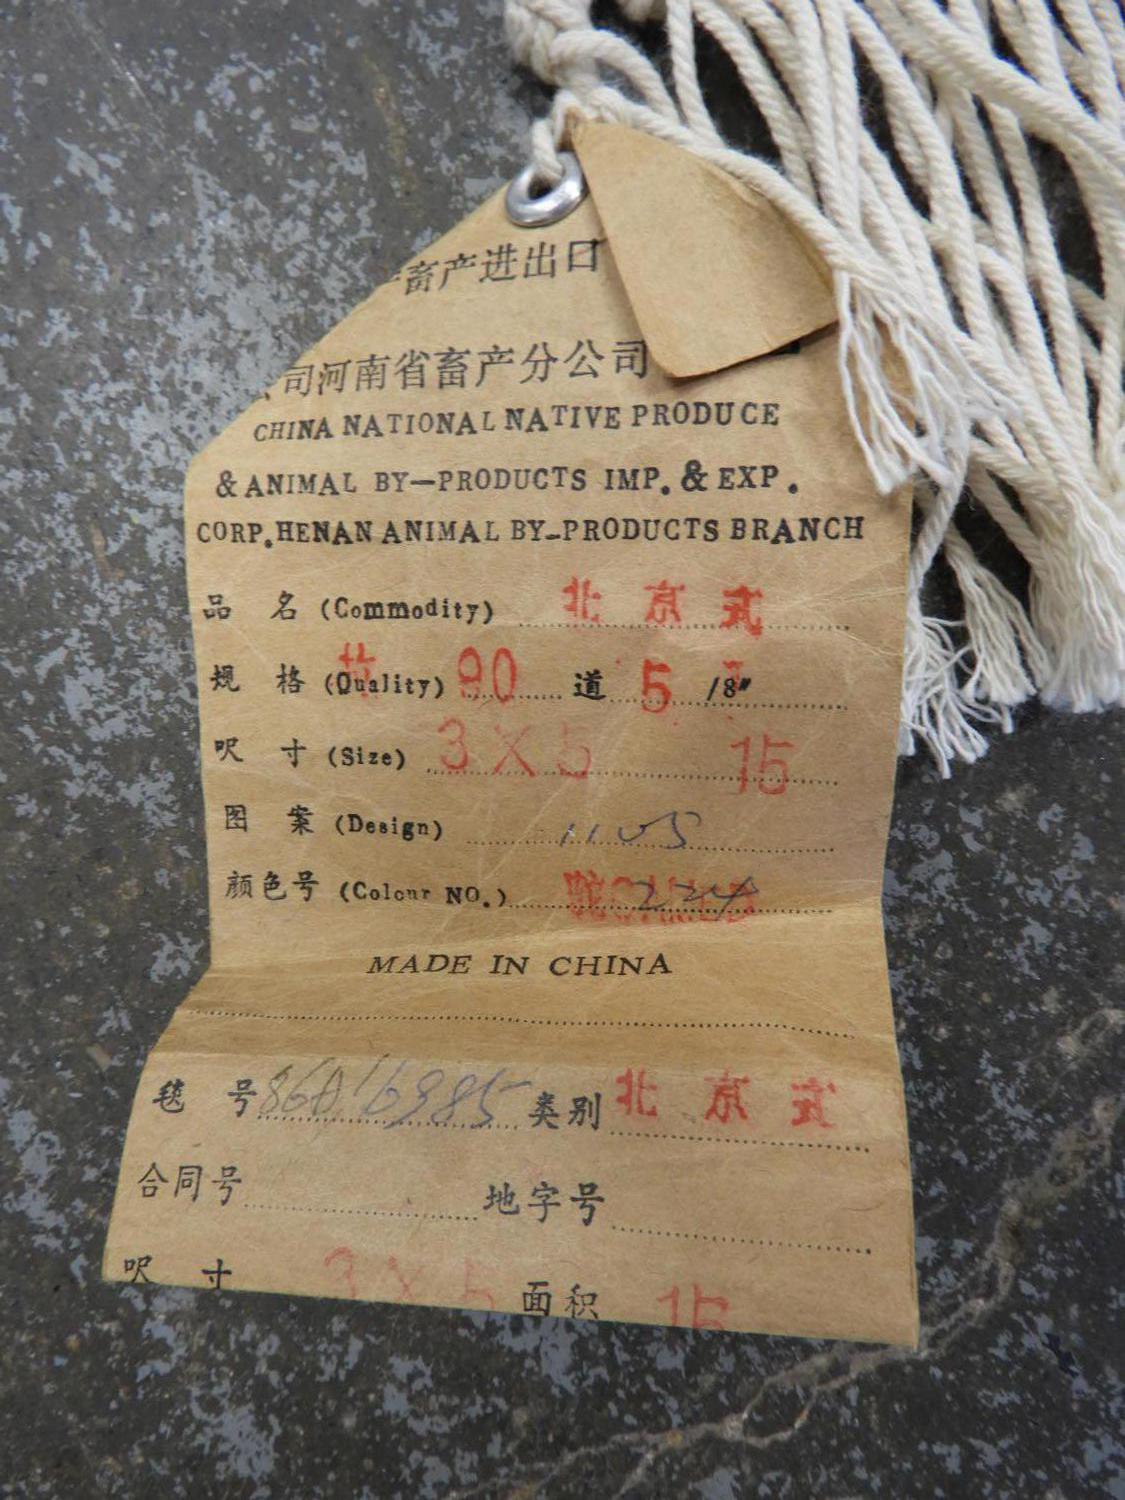 畜产进出口
司河南省畜产分公司
CHINA NATIONAL NATIVE PRODUCE
& ANIMAL BY-PRODUCTS IMP. & EXP.
CORP. HENAN ANIMAL BY-PRODUCTS BRANCH
品 名 (Commodity) 北京式
规 格 (Quality) 90 道 5 /8"
呎 寸 (Size) 3X5 15
图 案 (Design) 1105
颜色号 (Colour NO.) 224
MADE IN CHINA
毯 号 86A16985 类别 北京式
合同号 地字号
呎 寸 3X5 面积 15